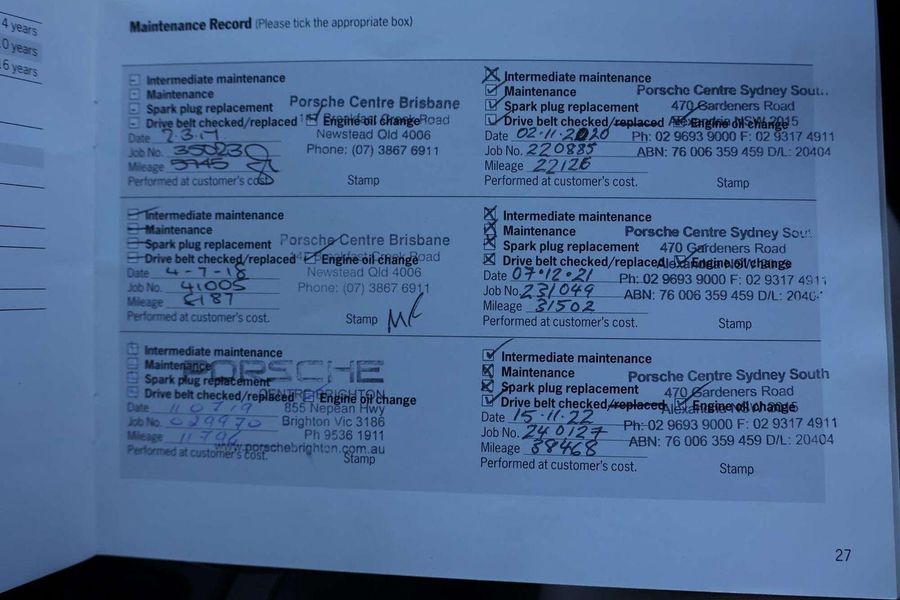 4 years
0 years
6 years
Maintenance Record (Please tick the appropriate box)
Intermediate maintenance
Maintenance
Spark plug replacement
Drive belt checked/replaced
Engine oil change
Porsche Centre Brisbane
Breakfast Creek Road
Newstead Qld 4006
Phone: (07) 3867 6911
Date 2.3.17
Job No. 35023
Mileage 5745
Performed at customer's cost.
Stamp
Intermediate maintenance
Maintenance
Spark plug replacement
Drive belt checked/replaced
Engine oil change
Porsche Centre Brisbane
Breakfast Creek Road
Newstead Qld 4006
Phone: (07) 3867 6911
Date 4-7-18
Job No. 41005
Mileage 8187
Performed at customer's cost.
Stamp
Intermediate maintenance
Maintenance
Spark plug replacement
Drive belt checked/replaced
Engine oil change
PORSCHE
CENTRE BRIGHTON
855 Nepean Hwy
Brighton Vic 3186
Ph 9536 1911
www.porschebrighton.com.au
Date 110719
Job No. 029970
Mileage 11796
Performed at customer's cost.
Stamp
Intermediate maintenance
Maintenance
Spark plug replacement
Drive belt checked/replaced
Engine oil change
Porsche Centre Sydney Sout
470 Gardeners Road
Alexandria NSW 2015
Ph: 02 9693 9000 F: 02 9317 4911
ABN: 76 006 359 459 D/L: 20404
Date 02.11.2020
Job No. 220885
Mileage 22126
Performed at customer's cost.
Stamp
Intermediate maintenance
Maintenance
Spark plug replacement
Drive belt checked/replaced
Engine oil change
Porsche Centre Sydney Sou
470 Gardeners Road
Alexandria
Ph: 02 9693 9000 F: 02 9317 4911
ABN: 76 006 359 459 D/L: 2040
Date 07.12.21
Job No. 231049
Mileage 31502
Performed at customer's cost.
Stamp
Intermediate maintenance
Maintenance
Spark plug replacement
Drive belt checked/replaced
Engine oil change
Porsche Centre Sydney South
470 Gardeners Road
Alexandria NSW 2015
Ph: 02 9693 9000 F: 02 9317 4911
ABN: 76 006 359 459 D/L: 20404
Date 15.11.22
Job No. 240127
Mileage 38468
Performed at customer's cost.
Stamp
27